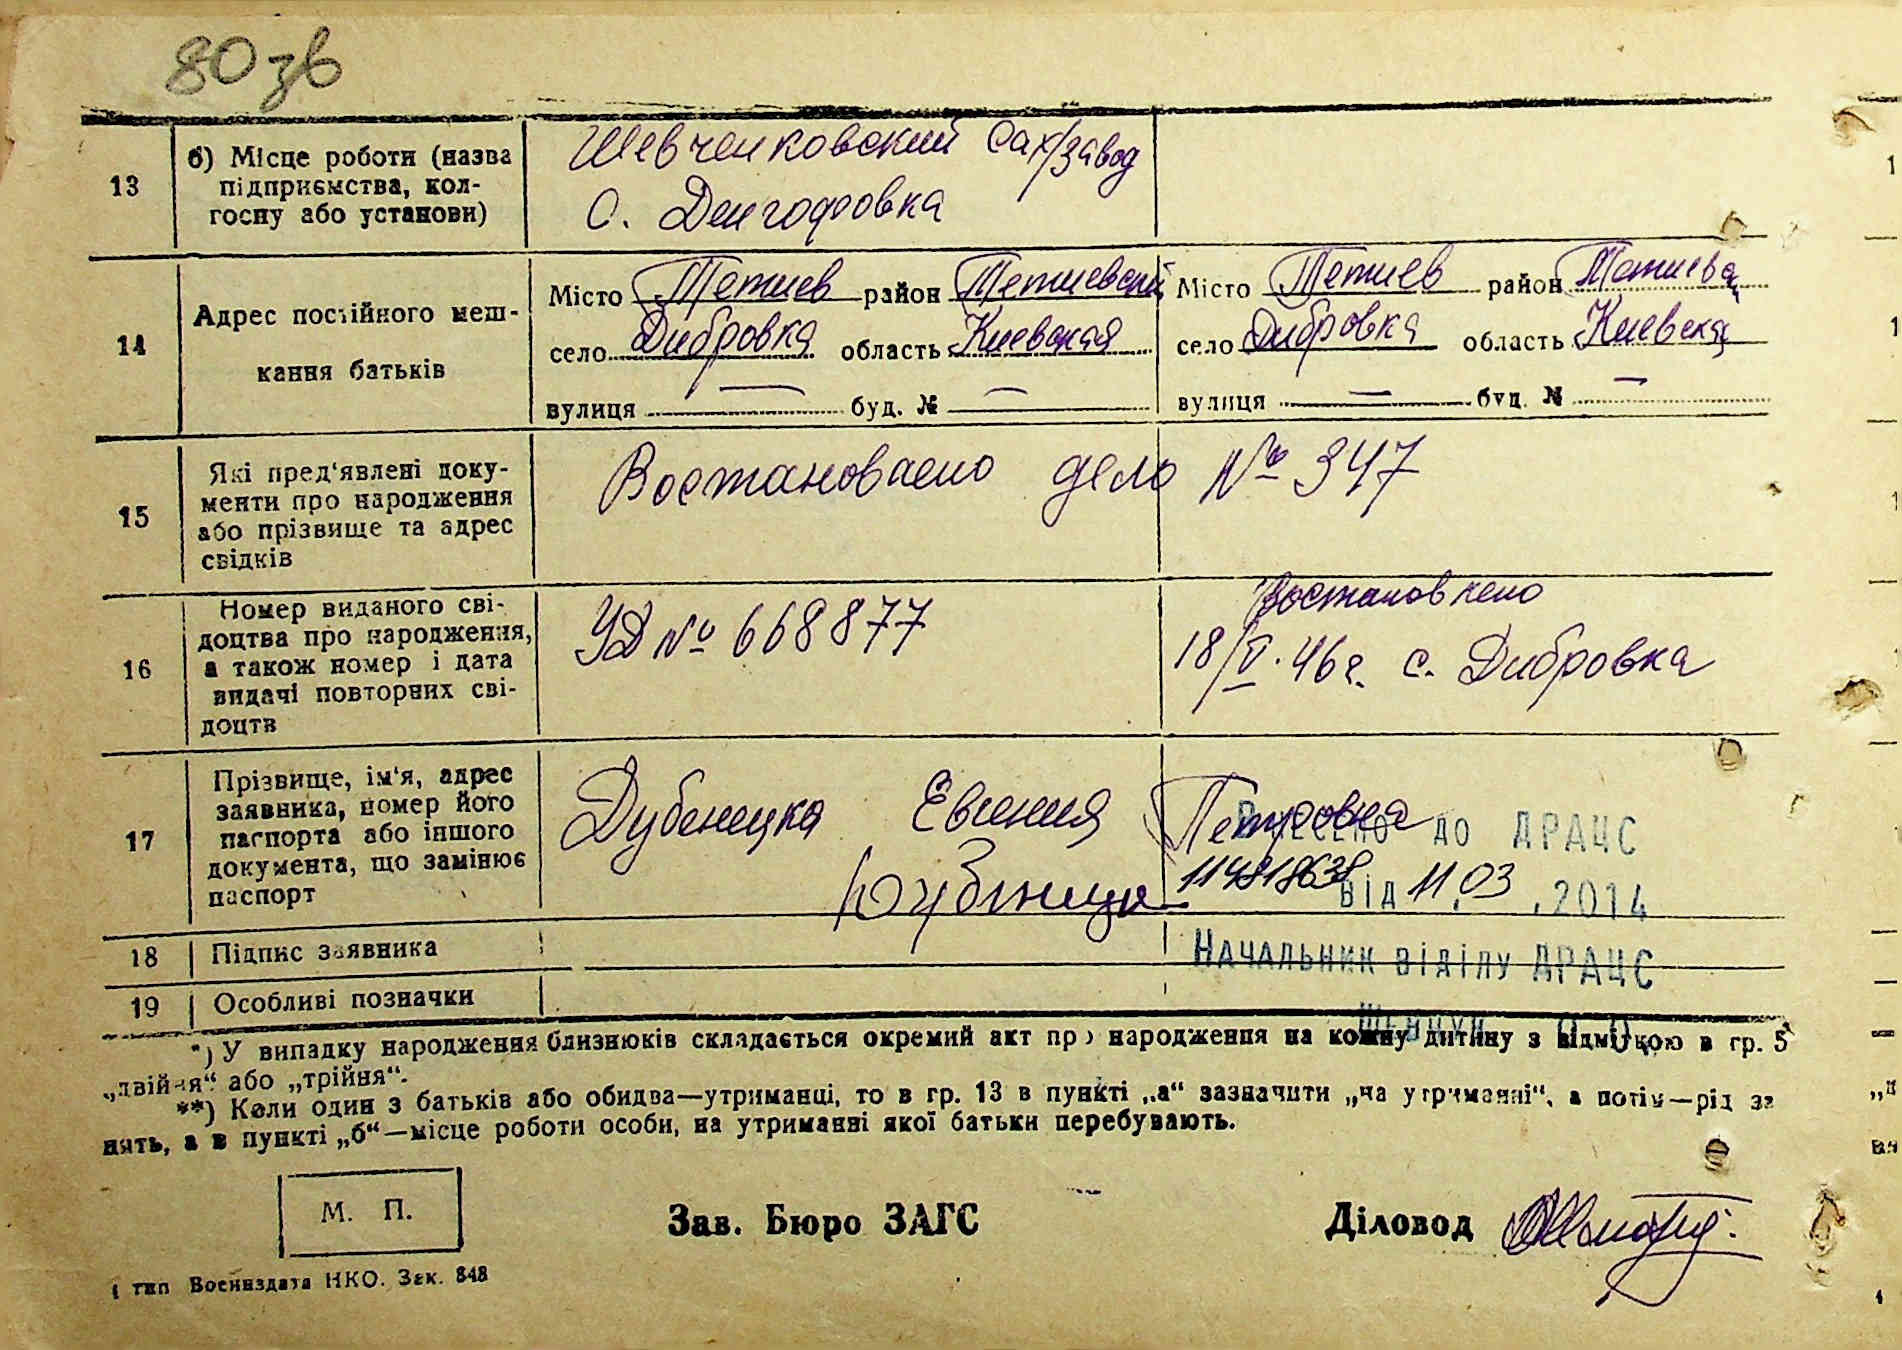 80 зв
13
б) Місце роботи (назва підприємства, колгоспу або установи)
Шевченковский Сах/завод
С. Денгофовка
14
Адрес постійного мешкання батьків
Місто Тетиев район Тетиевский
село Дибровка область Киевская
вулиця — буд. № —
Місто Тетиев район Тетиевск
село Дибровка область Киевская
вулиця — буд. № —
15
Які пред'явлені документи про народження або прізвище та адрес свідків
Востановлено дело № 347
16
Номер виданого свідоцтва про народження, а також номер і дата видачі повторних свідоцтв
УД № 668877
Востановлено
18/V.46г. с. Дибровка
17
Прізвище, ім'я, адрес заявника, номер його паспорта або іншого документа, що замінює паспорт
Дубеницка Евгения Петровна
ВНЕСЕНО ДО ДРАЦС
ВІД 11.03.2014
18
Підпис заявника
НАЧАЛЬНИК ВІДІЛУ ДРАЦС
19
Особливі позначки
*) У випадку народження близнюків складається окремий акт про народження на кожну дитину з відміткою в гр. 5
„двійня“ або „трійня“.
**) Коли один з батьків або обидва—утриманці, то в гр. 13 в пункті „а“ зазначити „на утриманні“, а потім—рід за
нять, а в пункті „б“—місце роботи особи, на утриманні якої батьки перебувають.
М. П.
Зав. Бюро ЗАГС
Діловод
1 тип Воениздата НКО. Зак. 848